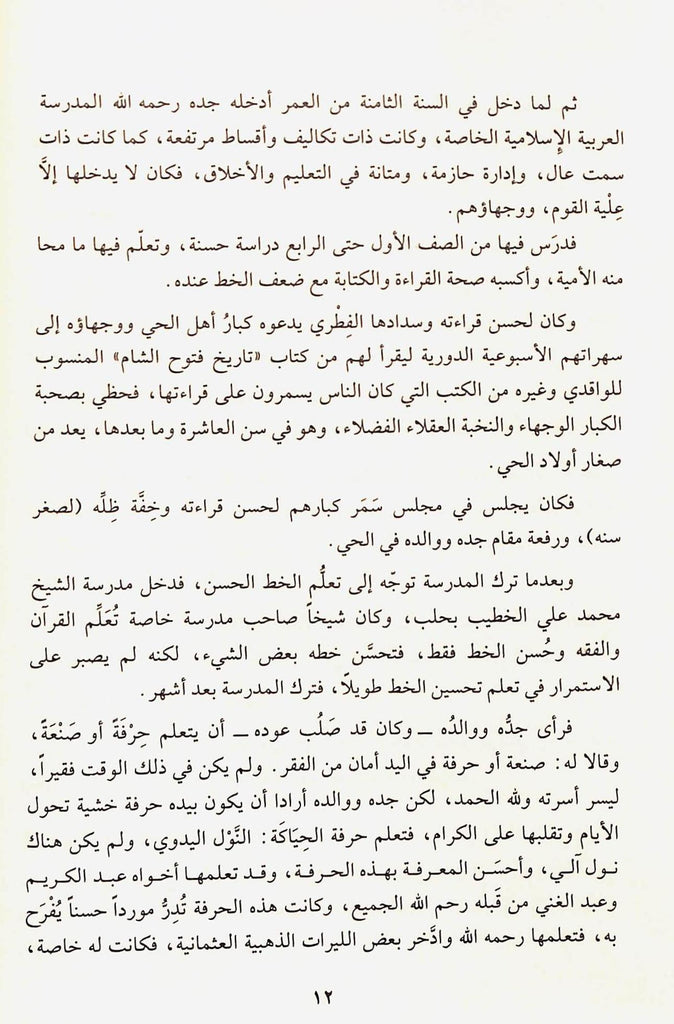 ثم لما دخل في السنة الثامنة من العمر أدخله جده رحمه الله المدرسة
العربية الإسلامية الخاصة، وكانت ذات تكاليف وأقساط مرتفعة، كما كانت ذات
سمت عال، وإدارة حازمة، ومتانة في التعليم والأخلاق، فكان لا يدخلها إلاَّ
عِلْية القوم، ووجهاؤهم.
فدرَس فيها من الصف الأول حتى الرابع دراسة حسنة، وتعلّم فيها ما محا
منه الأمية، وأكسبه صحة القراءة والكتابة مع ضعف الخط عنده.
وكان لحسن قراءته وسدادها الفِطْري يدعوه كبارُ أهل الحي ووجهاؤه إلى
سهراتهم الأسبوعية الدورية ليقرأ لهم من كتاب «تاريخ فتوح الشام» المنسوب
للواقدي وغيره من الكتب التي كان الناس يسمرون على قراءتها، فحظي بصحبة
الكبار الوجهاء والنخبة العقلاء الفضلاء، وهو في سن العاشرة وما بعدها، يعد من
صغار أولاد الحي.
فكان يجلس في مجلس سَمَر كبارهم لحسن قراءته وخِفَّة ظِلِّه (لصغر
سنه)، ورفعة مقام جده ووالده في الحي.
وبعدما ترك المدرسة توجّه إلى تعلُّم الخط الحسن، فدخل مدرسة الشيخ
محمد علي الخطيب بحلب، وكان شيخاً صاحب مدرسة خاصة تُعَلِّم القرآن
والفقه وحُسن الخط فقط، فتحسَّن خطه بعض الشيء، لكنه لم يصبر على
الاستمرار في تعلم تحسين الخط طويلًا، فترك المدرسة بعد أشهر.
فرأى جدُّه ووالدُه ــ وكان قد صَلُب عوده ــ أن يتعلم حِرْفَةً أو صَنْعَةً،
وقالا له: صنعة أو حرفة في اليد أمان من الفقر. ولم يكن في ذلك الوقت فقيراً،
ليسر أسرته ولله الحمد، لكن جده ووالده أرادا أن يكون بيده حرفة خشية تحول
الأيام وتقلبها على الكرام، فتعلم حرفة الحِيَاكَة: النَّوْل اليدوي، ولم يكن هناك
نول آلي، وأحسَن المعرفة بهذه الحرفة، وقد تعلمها أخواه عبد الكريم
وعبد الغني من قَبله رحم الله الجميع، وكانت هذه الحرفة تُدِرُّ مورداً حسناً يُفْرَح
به، فتعلمها رحمه الله وادَّخر بعض الليرات الذهبية العثمانية، فكانت له خاصة،
١٢